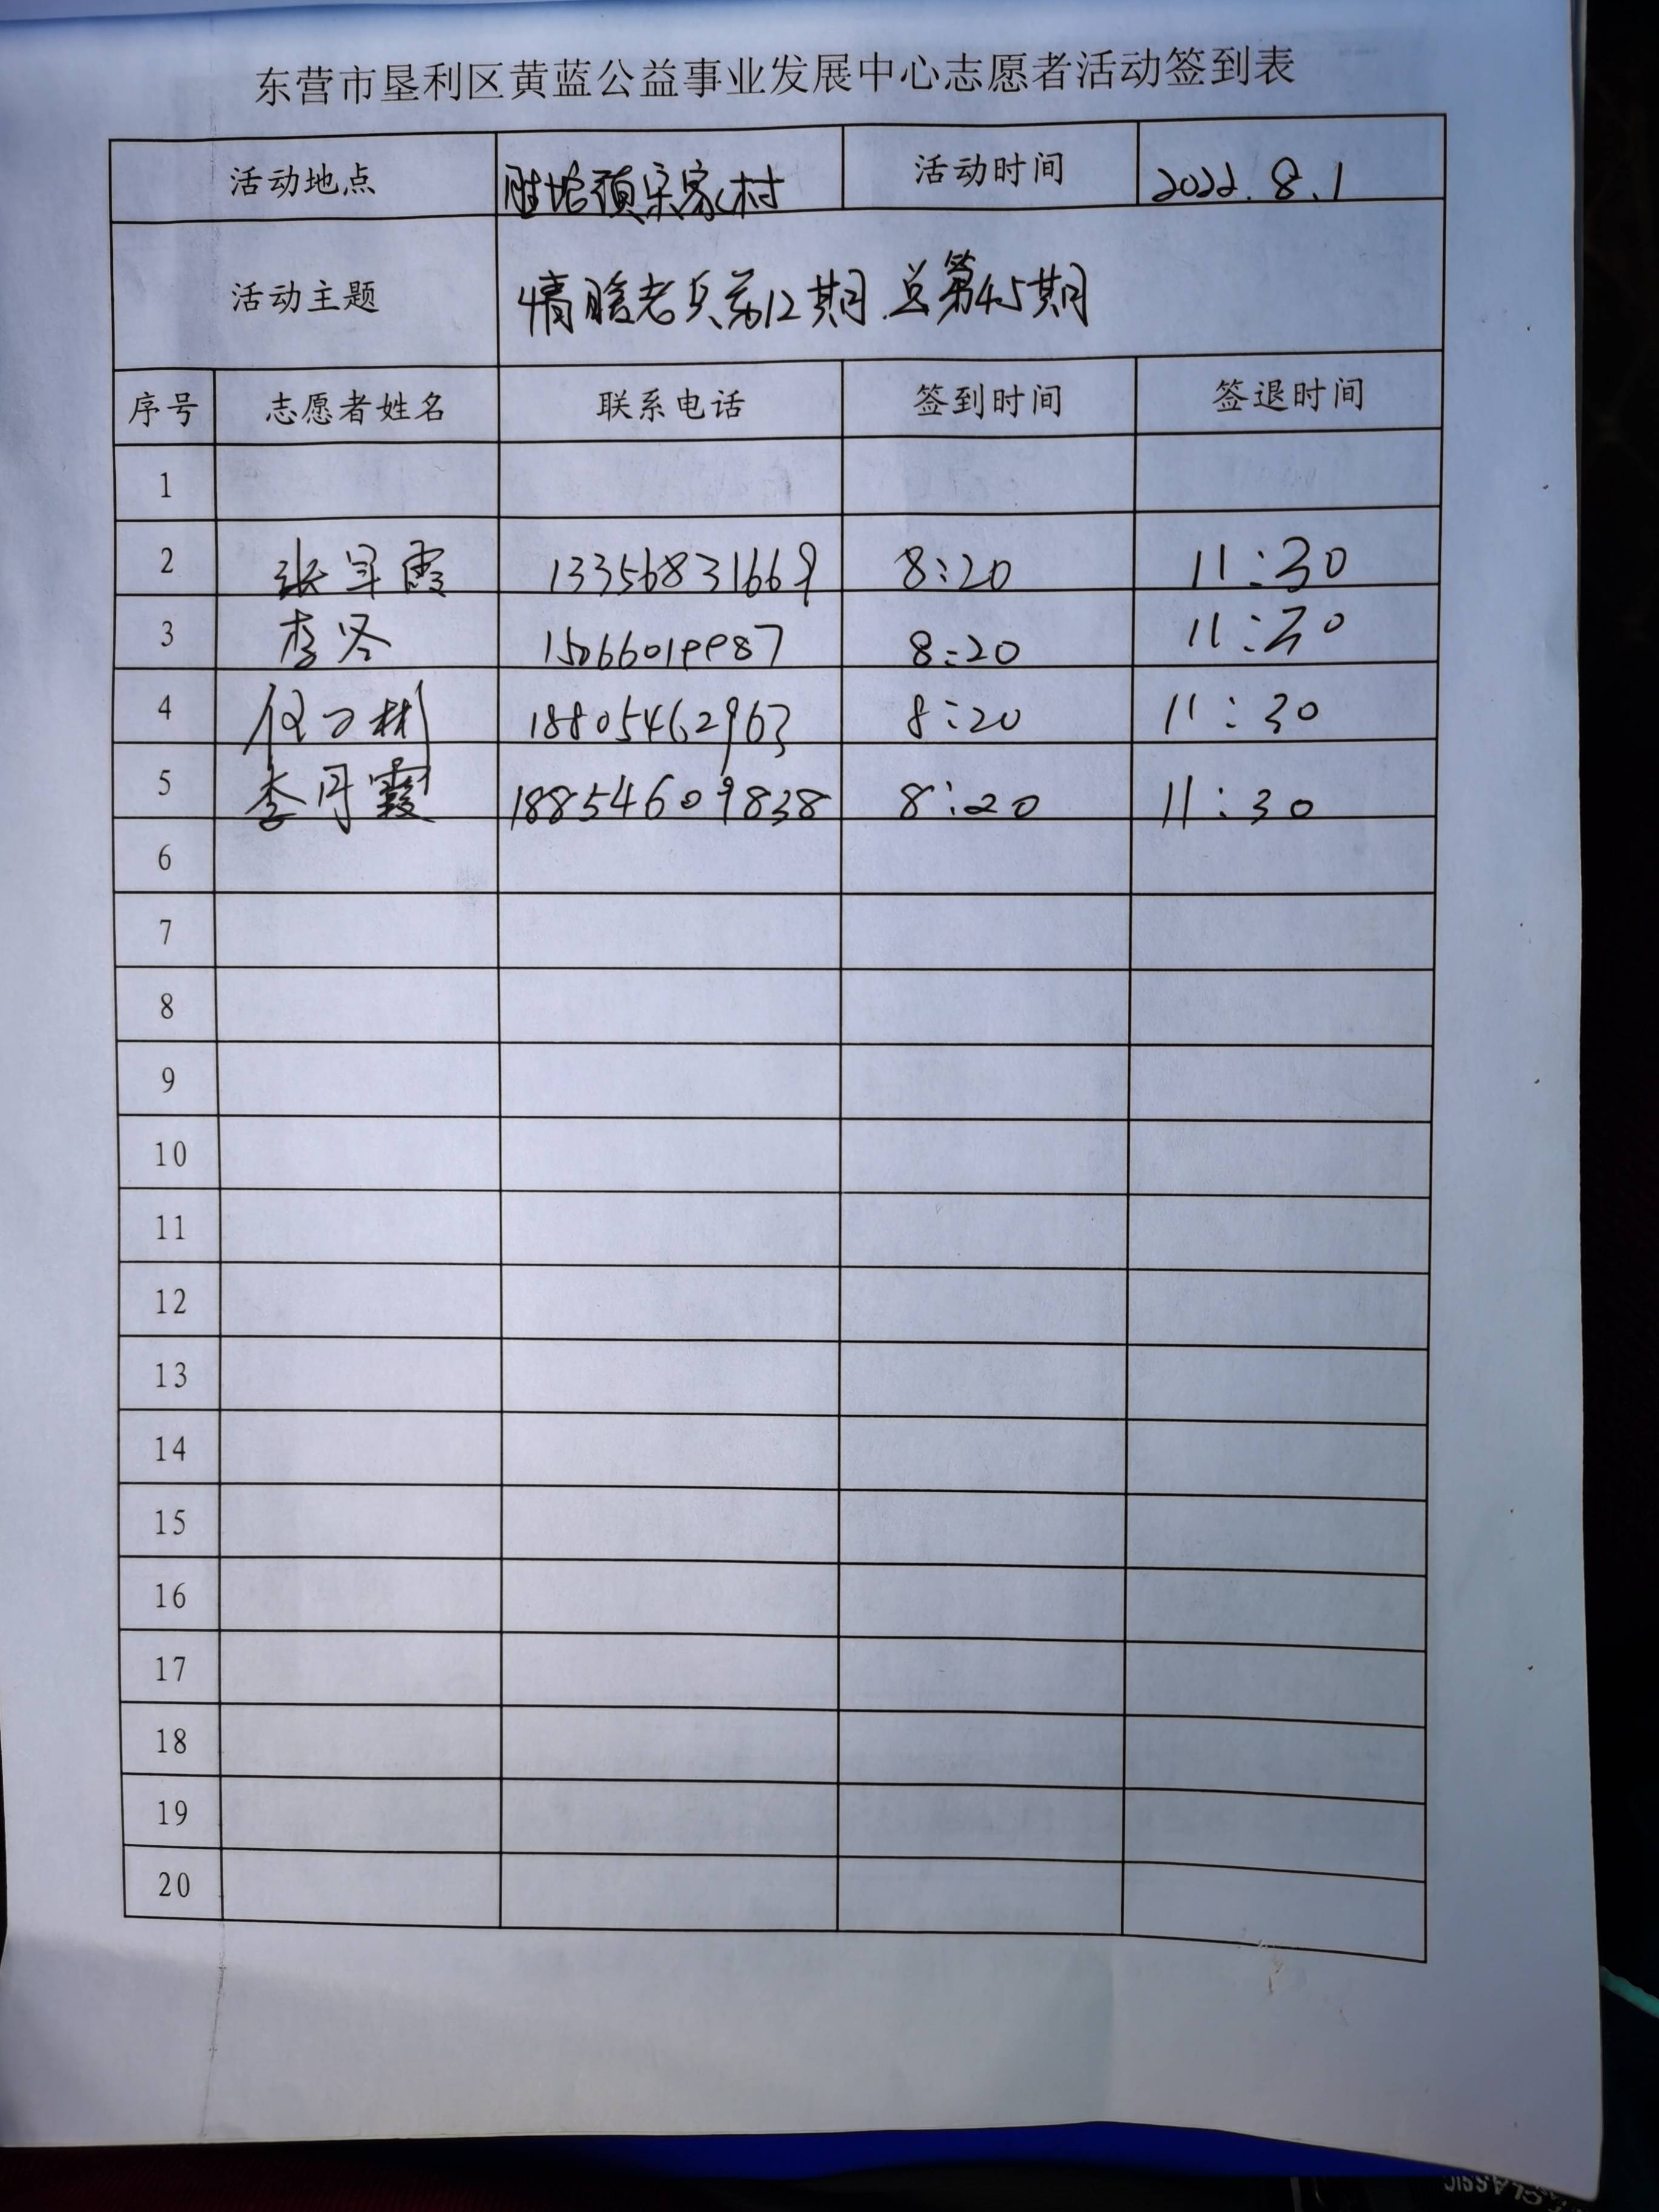 东营市垦利区黄蓝公益事业发展中心志愿者活动签到表
活动地点 胜坨镇宋家村 活动时间 2022.8.1
活动主题 情暖老兵第12期.总第45期
序号 志愿者姓名 联系电话 签到时间 签退时间
1
2 张 霞 13356831669 8:20 11:30
3 李冬 15066019987 8:20 11:30
4 18805462963 8:20 11:30
5 李丹霞 18854609838 8:20 11:30
6
7
8
9
10
11
12
13
14
15
16
17
18
19
20
CLASSIC